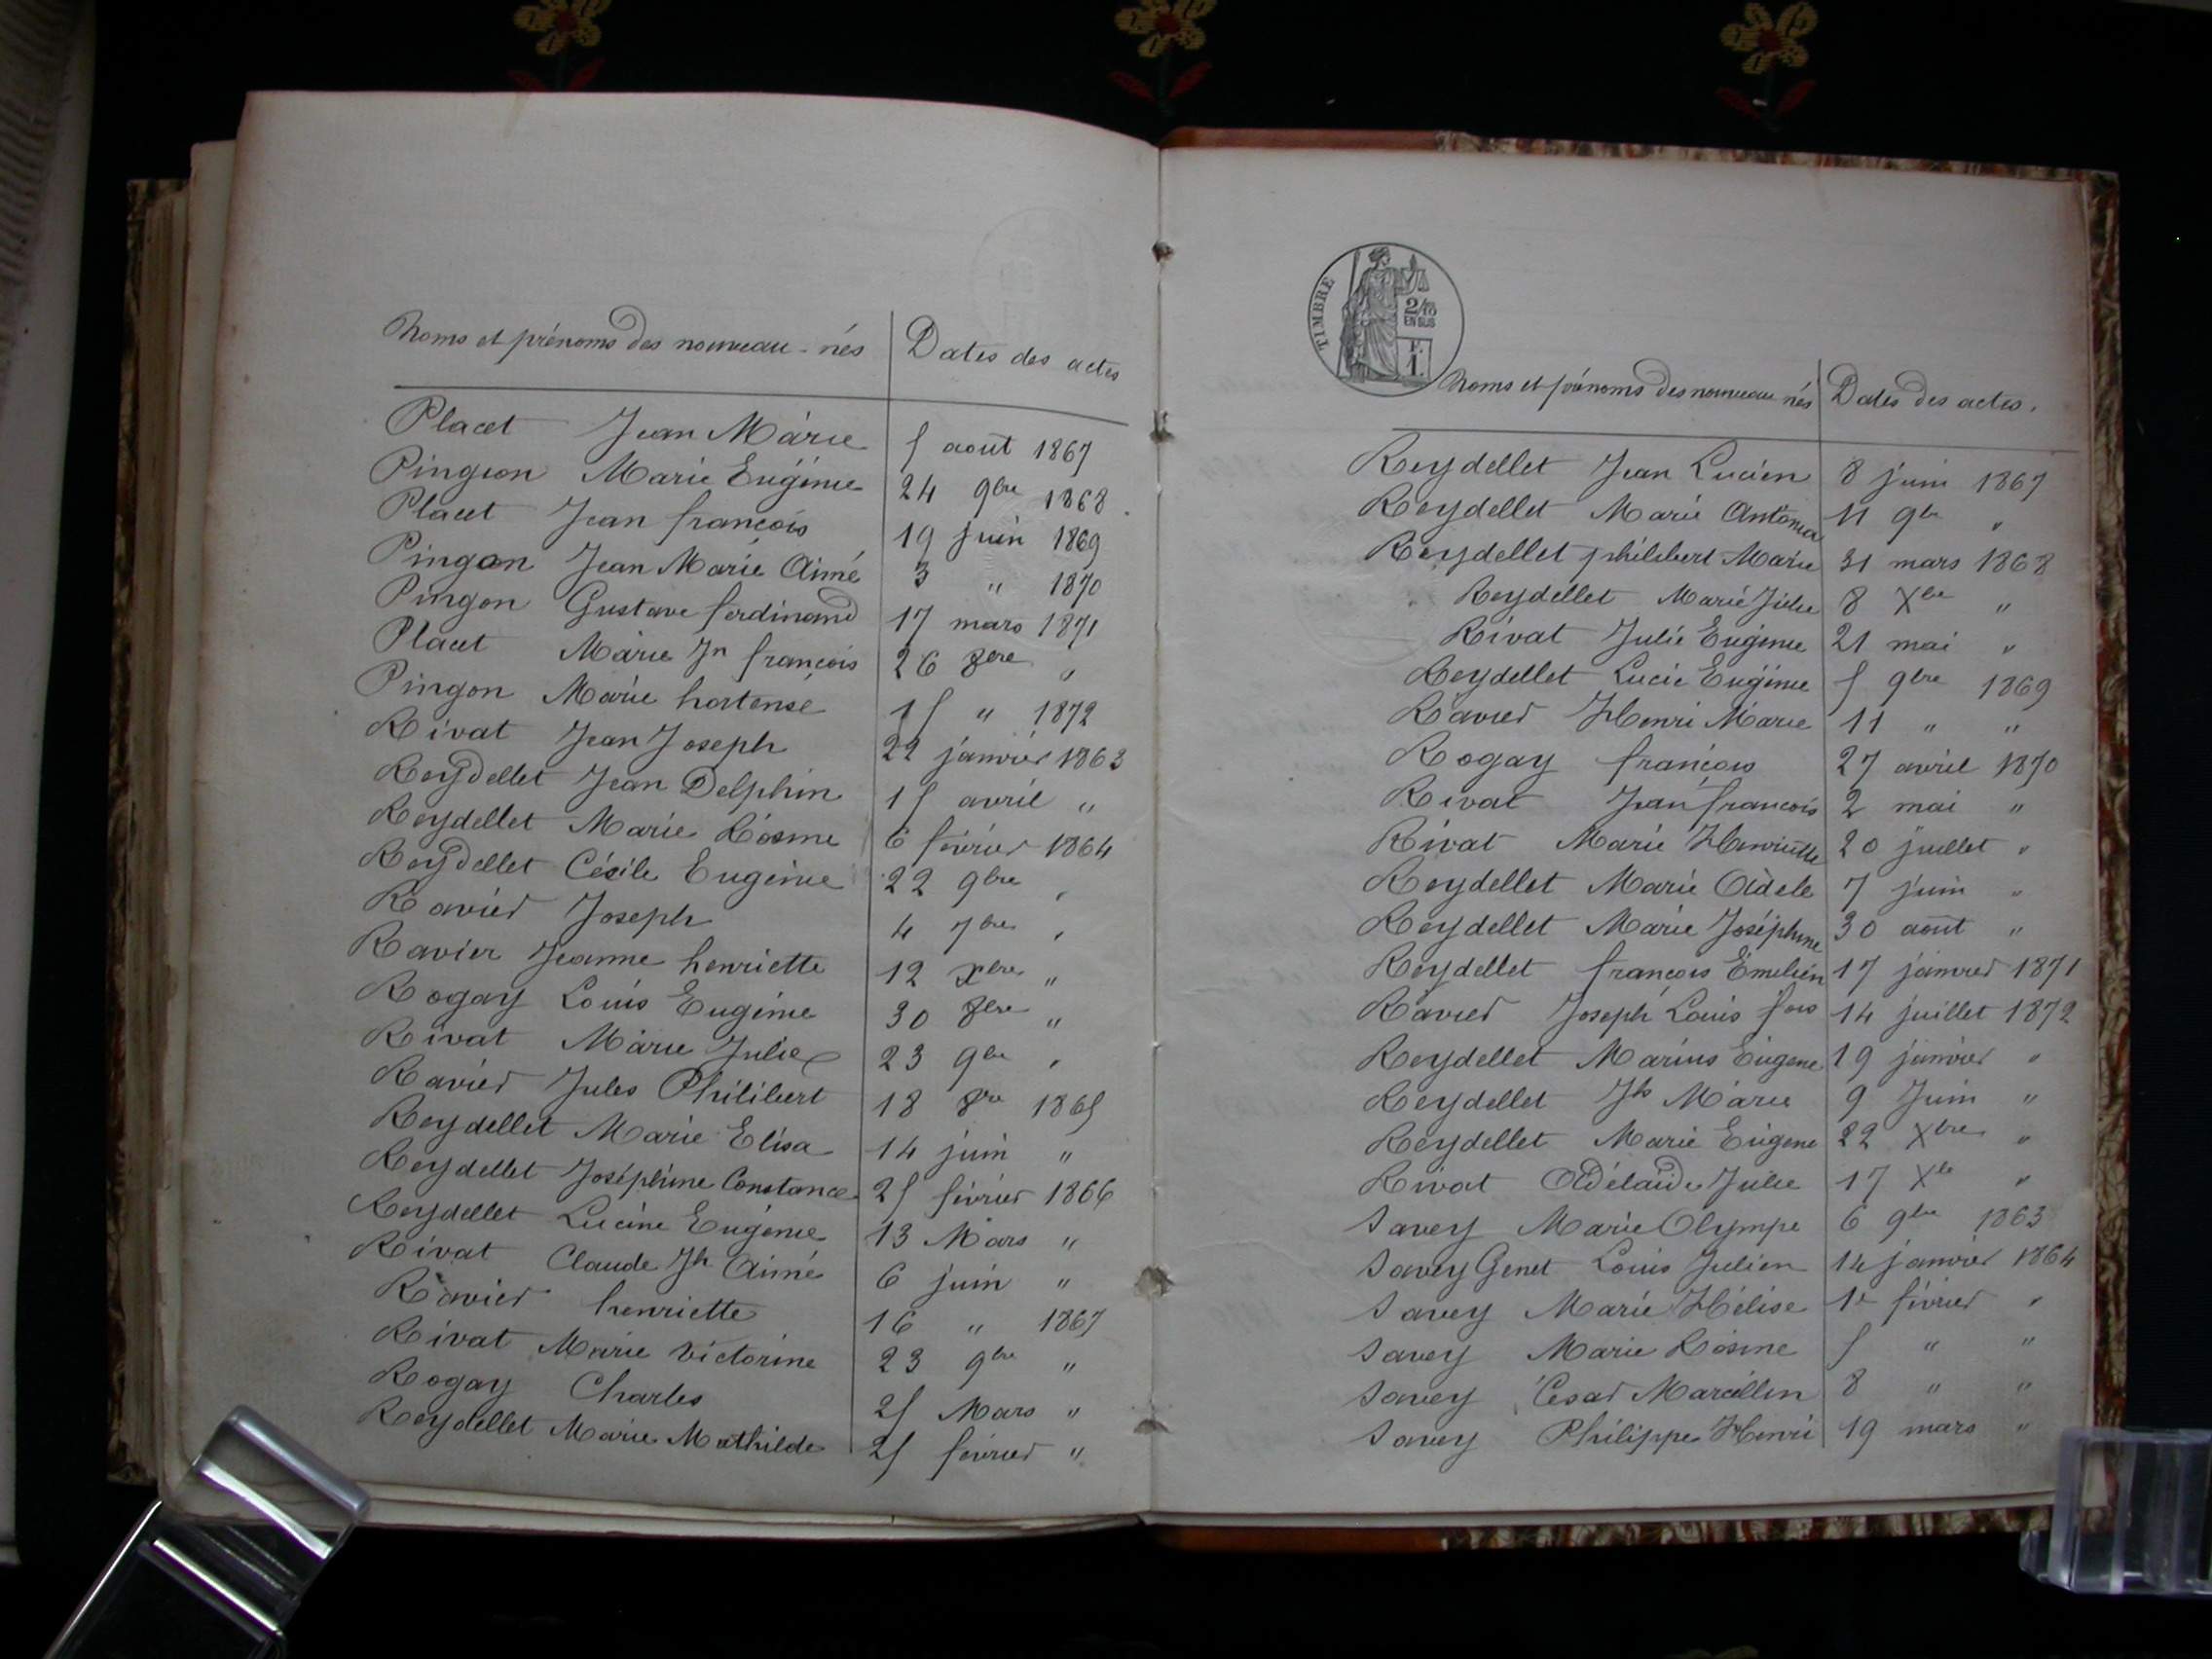 Noms et prénoms des nouveau-nés Dates des actes
Placet Jean Marie 5 août 1867
Pingeon Marie Eugénie 24 9bre 1868.
Placet Jean françois 19 juin 1869
Pingon Jean Marie Aimé 3 " 1870
Pingon Gustave ferdinand 17 mars 1871
Placet Marie Jn françois 26 8bre "
Pingon Marie hortense 15 " 1872
Rivat Jean Joseph 22 janvier 1863
Reydellet Jean Delphin 15 avril "
Reydellet Marie Rosine 6 février 1864
Reydellet Cécile Eugénie 22 9bre "
Ravier Joseph 4 7bre "
Ravier Jeanne henriette 12 Xbre "
Rogay Louis Eugénie 30 8bre "
Rivat Marie Julie 23 9bre "
Ravier Jules Philibert 18 8bre 1865
Reydellet Marie Elisa 14 juin "
Reydellet Joséphine Constance 25 février 1866
Reydellet Lucine Eugénie 13 Mars "
Rivat Claude Jh Aimé 6 juin "
Ravier henriette 16 " 1867
Rivat Marie Victorine 23 9bre "
Rogay Charles 25 Mars "
Reydellet Marie Mathilde 25 février "
TIMBRE
2/10
EN SUS
F.
1.
Noms et prénoms des nouveau nés Dates des actes.
Reydellet Jean Lucien 8 juin 1867
Reydellet Marie Antonia 11 9bre "
Reydellet philibert Marie 31 mars 1868
Reydellet Marie Julie 8 Xbre "
Rivat Julie Eugénie 21 mai "
Reydellet Lucie Eugénie 5 9bre 1869
Ravier Henri Marie 11 " "
Rogay françois 27 avril 1870
Rivat Jean françois 2 mai "
Rivat Marie Henriette 20 juillet "
Reydellet Marie Adèle 7 juin "
Reydellet Marie Joséphine 30 août "
Reydellet françois Émilien 17 janvier 1871
Ravier Joseph Louis fois 14 juillet 1872
Reydellet Marius Eugene 19 janvier "
Reydellet Jh Marie 9 Juin "
Reydellet Marie Eugene 22 Xbre "
Rivat Adélaïde Julie 17 Xbre "
Savey Marie Olympe 6 9bre 1863
Savey Genet Louis Julien 14 janvier 1864
Savey Marie Hélise 1er février "
Savey Marie Rosine 5 " "
Savey César Marcellin 8 " "
Savey Philippe Henri 19 mars "